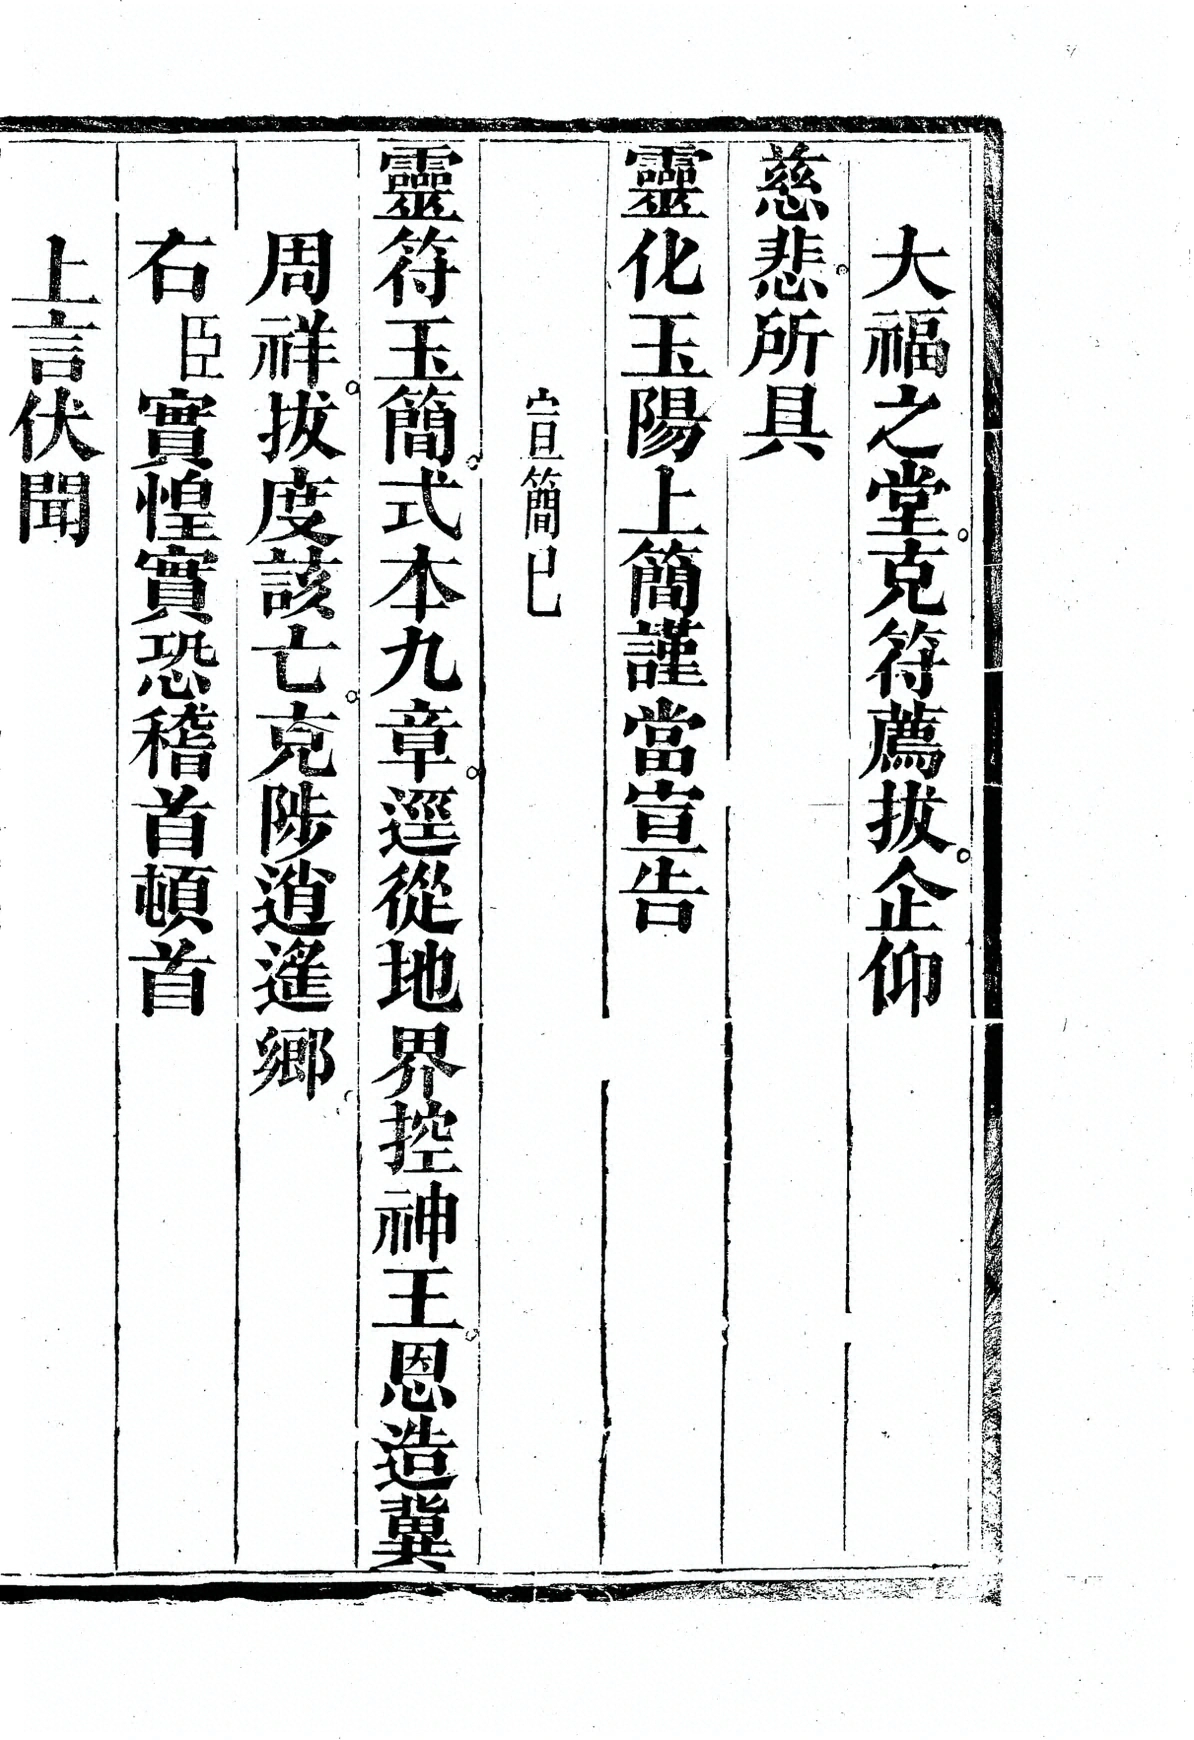 大福之堂。克符薦拔。企仰
慈悲。所具
靈化玉陽上簡謹當宣告
宣簡已
靈符玉簡。式本九章。逕從地界控神王。恩造冀
周祥。拔度該亡。克陟逍遙鄉。
右臣實惶實恐稽首頓首
上言伏聞